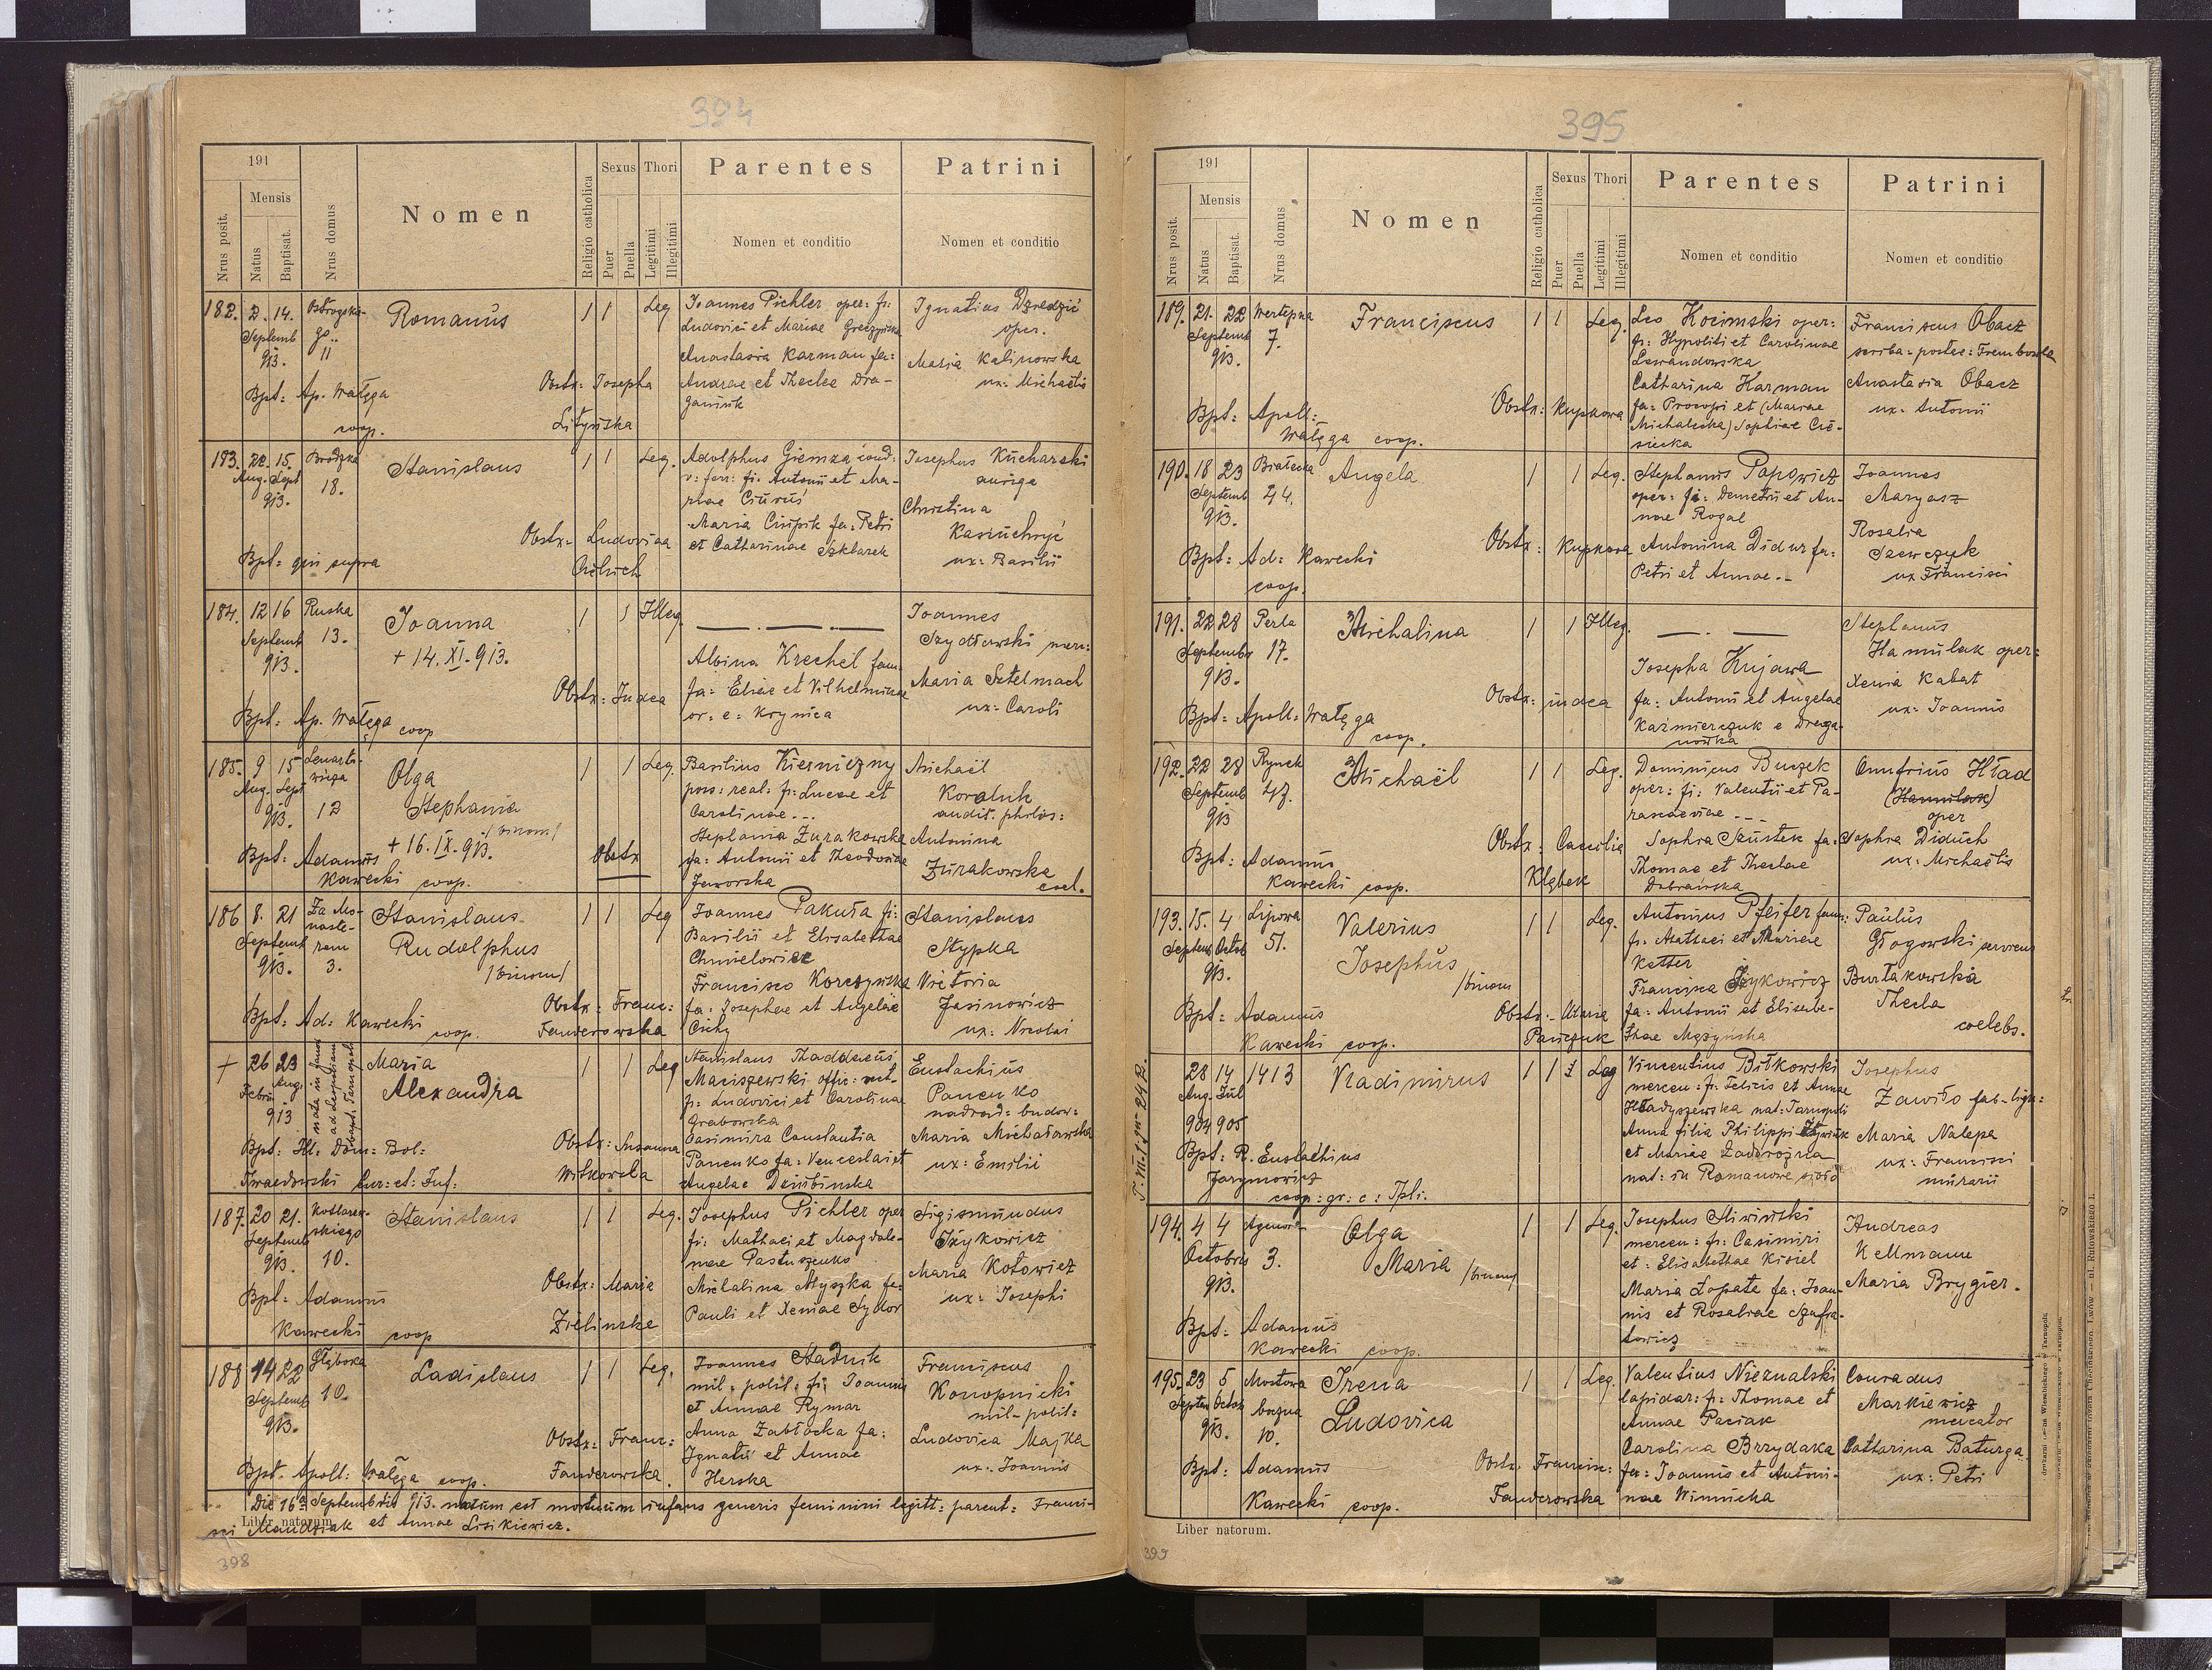 394
191
Nrus posit.
Mensis
Natus
Baptisat.
Nrus domus
Nomen
Religio catholica
Sexus
Puer
Puella
Thori
Legitimi
Illegitimi
Parentes
Nomen et conditio
Patrini
Nomen et conditio
182. 2. 14. Septemb 913. Ostrogska- go 11
Romanus
1 1 Leg
Joannes Pichler oper: fi:
Ludovici et Mariae
Anastasia Karman fa:
Andreae et Theclae Dra-
ganiuk
Ignatius
oper.
Maria Kalinowska
ux: Michaelis
Bpt: Ap. Wałęga
coop.
Obstr: Josepha
Lityńska
183. 22. 15. Aug. Sept 913. Brodzka 18.
Stanislaus
1 1 Leg.
Adolphus Giemza cond:
v: ferr: fi: Antonii et Ma-
riae Ciuruś
Maria Ciupik fa: Petri
et Catharinae Szklarek
Josephus Kucharski
auriga
Christina
ux: Basilii
Bpt: qui supra
Obstr: Ludovica
184. 12 16 Septemb 913. Ruska 13.
Joanna
+ 14. XI. 913.
1 1 Illeg.
Albina Krechel fam:
fa: Eliae et Vilhelminae
or: e: Krynica
Joannes
Szydłowski merc:
Maria Stelmach
ux: Caroli
Bpt: Ap. Wałęga
coop
Obstr: Judea
185. 9 15 Aug. Sept 913. 12
Olga
Stephania
/binom/
+ 16. IX. 913.
1 1 Leg.
Basilius Kierniczny
poss: real: fi: Lucae et
Carolinae ---
Stephania Żurakowska
fa: Antonii et Theodosiae
Jaworska
Michaël
Koraluk
audit. philos:
Antonina
Żurakowska
coel.
Bpt: Adamus
Kawecki coop.
Obstr
186 8. 21 Septemb 913. Za Mo-
naste-
rem
3.
Stanislaus
Rudolphus
/binom/
1 1 Leg
Joannes Pakuła fi:
Basilii et Elisabethae
Chmielowicz
Francisca Korczyńska
fa: Josephae et Angelae
Cichy
Stanislaus
Stypka
Victoria
Jasinowicz
ux: Nicolai
Bpt: Ad: Kawecki
coop.
Obstr: Franc:
Fanderowska
+ 26 23 Febru Aug. 913
nata in Janów
ad Leopoliam
bapt. Tarnopoli
Maria
Alexandra
1 1 Leg
Stanislaus Thaddaeus
Maciszewski offic:
fi: Ludovici et Carolinae
Grabowska
Casimira Constantia
Panenko fa: Venceslai et
Angelae Dziubinska
Eustachius
Panenko
nadrad: budow:
Maria Michałowska
ux: Emilii
Bpt: Ill: Dom: Bol:
Twardowski Cur: et: Inf:
Obstr: Susanna
Witkowska
187. 20 21. Septemb 913. Kotlarew-
skiego
10.
Stanislaus
1 1 Leg.
Josephus Pichler oper
fi: Mathaei et Magdale-
nae Pastuszenko
Michalina Myszka fa:
Pauli et Xeniae Sydor
Sigismundus
Szykowicz
Maria Kotowicz
ux: Josephi
Bpt: Adamus
Kawecki coop
Obstr: Maria
Zielinske
188 14 22 Septemb 913. Głęboka 10.
Ladislaus
1 1 Leg.
Joannes Stadnik
mil: polit: fi: Joannis
et Annae Rymar
Anna Zabłocka fa:
Ignatii et Annae
Herska
Franciscus
Konopnicki
mil-polit:
Ludovica Majka
ux: Joannis
Bpt. Apoll: Wałęga coop.
Obstr: Franc:
Fanderowska
Die 16a Septembris 913. natum est mortuum infans generis feminini legitt: parent: Franci-
sci Maudziak et Annae Lisikiewicz.
Liber natorum.
398
395
191
Nrus posit.
Mensis
Natus
Baptisat.
Nrus domus
Nomen
Religio catholica
Sexus
Puer
Puella
Thori
Legitimi
Illegitimi
Parentes
Nomen et conditio
Patrini
Nomen et conditio
189. 21. 22 Septemb 913. Wertepna 7.
Franciscus
1 1 Leg.
Leo Kocimski oper:
fi: Hypoliti et Carolinae
Lewandowska
Catharina Karman
fa: Procopi et (Mariae
Michalecka) Sophiae Cie-
siecka
Franciscus Obacz
scriba-postae: Trembowla
Anastasia Obacz
ux: Antonii
Bpt: Apoll:
Wałęga coop.
Obstr: Kupkowa
190. 18 23 Septemb 913. 44.
Angela
1 1 Leg.
Stephanus Popowicz
oper: fi: Demetrii et An-
nae Rogal
Antonina Didur fa:
Petri et Annae --
Joannes
Maryasz
Rosalia
Szewczyk
ux Francisci
Bpt: Ad: Kawecki
coop.
Obstr: Kupkowa
191. 22 28 Septembr 913. Perla 17.
Michalina
1 1 Illeg.
Josepha Kujawa
fa: Antonii et Angelae
Kaźmierczuk e Draga-
nówka
Stephanus
Hamulak oper:
Xenia Kabat
ux: Joannis
Bpt: Apoll: Wałęga
coop.
Obstr: judea
192. 22 28 Septemb 913 Rynek 47.
Michaël
1 1 Leg.
Dominicus Buczek
oper: fi: Valentii et Pa-
rascaeviae ---
Sophia Szustek fa:
Thomae et Theclae
Dobrańska
Onufrius Hład
(Hamulak)
oper
Sophia Diduch
ux: Michaëlis
Bpt: Adamus
Kawecki coop.
Obstr: Caecilia
Kłębek
193. 15. 4 Septemb Octob 913. Lipowa 51.
Valerius
Josephus
/binom
1 1 Leg.
Antonius Pfeifer fam:
fi: Mathaei et Mariae
Ketter
Francisca Szykowicz
fa: Antonii et Elisabe-
thae Mężyńska
Paulus
Głogowski
Burtakowska
Thecla
coelebs.
Bpt: Adamus
Kawecki coop.
Obstr:- Maria
Pańczuk
28 14 Aug. Jul 904 905 1413
Vladimirus
1 1 Leg
Vincentius Bitkowski
mercen: fi: Felicis et Annae
Hładyszewska nat: Tarnopoli
Anna filia Philippi
et Mariae Zadorożna
nat: in Romanowe sioło
Josephus
Zawiło fab-lign:
Maria Nalepa
ux: Francisci
murarii
Bpt: R. Eustachius
Jarymowicz
coop: gr: c: Tpli.
194. 4 4 Octobris 913. 3.
Olga
Maria /binom/
1 1 Leg.
Josephus Sliwiński
mercen: fi: Casimiri
et: Elisabethae Kisiel
Maria Łopata fa: Joan-
nis et Rosaliae Szafra-
towicz
Andreas
Kellmann
Maria Brygier.
Bpt: Adamus
Kawecki coop.
195. 23 5 Septem Octob 913. Mostowa
boczna
10.
Irena
Ludovica
1 1 Leg.
Valentius Nieznalski
lapidar: fi: Thomae et
Annae Paciak
Carolina Brzydaka
fa: Joannis et Antoni-
nae Winnicka
Conradus
Markiewicz
mercator
Catharina Baturga
ux: Petri
Bpt: Adamus
Kawecki coop.
Obstr. Francisc:
Fanderowska
Liber natorum.
399